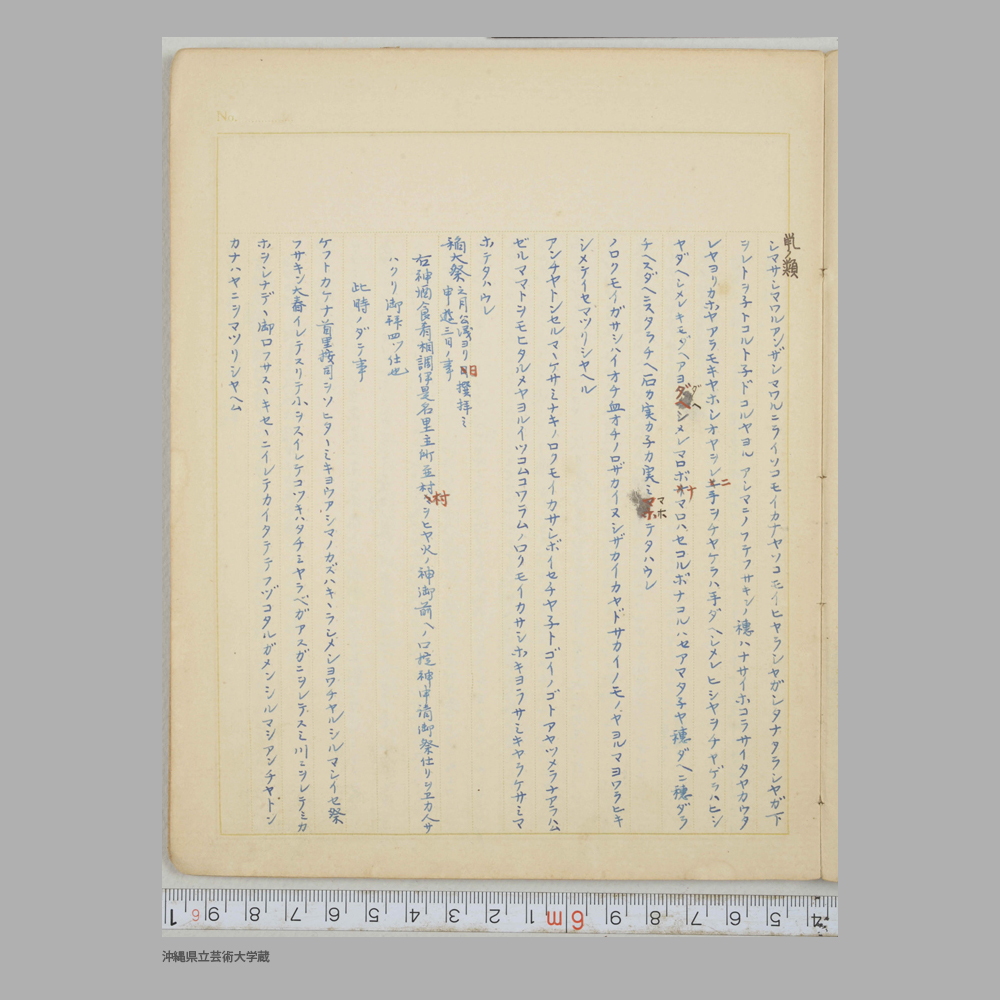 鼡ノ類
シマサシマワルアシザシマワルニライソコモイカナヤソコモイヒヤラシヤガシタナタラシヤガ下
シレトヲ子トコルト子ドコルヤヨルアシマニノフテフサキシノ穗ハナサイホコラサイタヤカウタ
レヤヨリカホヤアラモキヤホシオヤシレニ手ヲチヤケラハ手ダヘシメレヒシヤヲチヤゲラハヒシ
ヤダヘシメレキモダヘアヨダヘシメレマロボナマロハセコルボナコルハセアマタ子ヤ穗ダヘニ穗ダラ
チヘズダヘニスタラチヘ石カ実カ子カ実ミマホテタハウレ
ノロクモイガサシハイオチ血オチノロザカイヌシザカイカヤドサカイノモノヤヨルマヨワラヒキ
シメテイセマツリシヤヘル
アンチヤトンセルマヽケサミナキノロクモイカサシボイセチヤ子トゴイノゴトアヤツメラナアラハム
ゼルママトシモヒタルメヤヨルイツコムコワラムノロクモイカサシホキヨラサミキヤラケサミマ
ホテタハウレ
稲大祭 之月公儀ヨリ日撰拝ミ
申遊三日ノ事
右神酒食肴相調伊是名里主所並村々ヲヒヤ火ノ神御前ヘノロ掟神申請御祭仕リシエカ人サ
ハクリ御拝四ツ仕也
此時ノダテ事
ケフトカケナ首里按司ヲソヒタヽミキヨウアシマノカズハキヽラシメシヨワチヤルシルマシイセ祭
フサキン大春イレテスリテ小ヲスイレテコツキハタチミヤラベガアスガニヲレテスミ川ニヲレテミカ
ホヲシナデヽ御口フサスヽキセヽニイレテカイタテテフヅコタルガメンシルマシアンチヤトン
カナハヤニシマツリシヤヘム
No.
沖縄県立芸術大学蔵